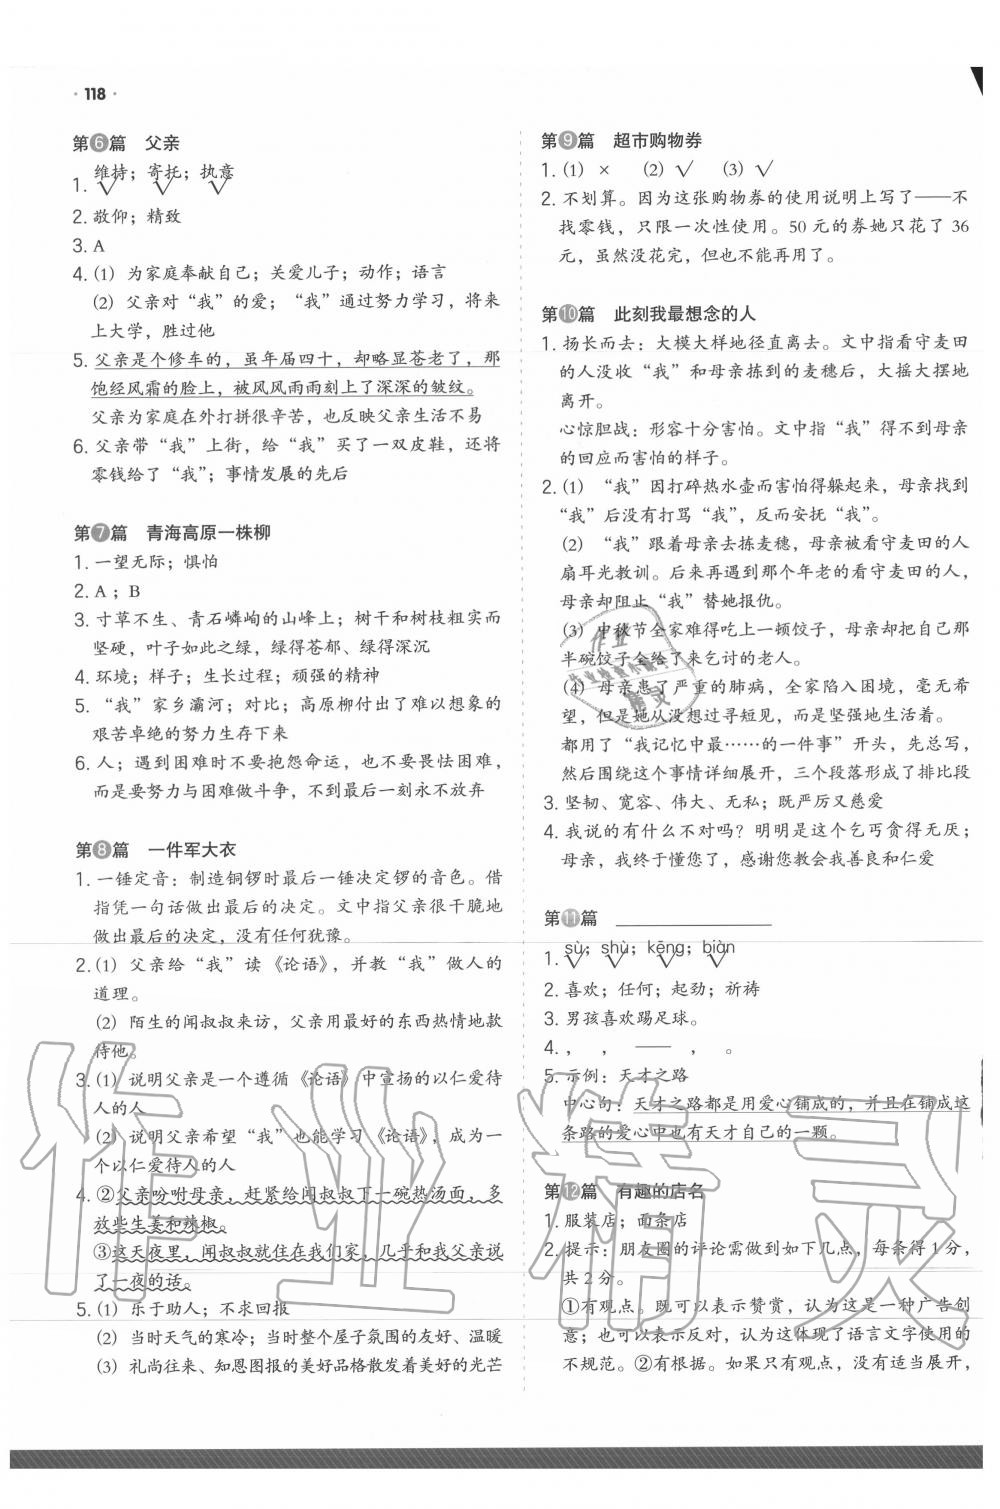 · 118 ·
第6篇 父亲
1. 维持；寄托；执意
√ √ √
2. 敬仰；精致
3. A
4. (1) 为家庭奉献自己；关爱儿子；动作；语言
(2) 父亲对“我”的爱；“我”通过努力学习，将来
上大学，胜过他
5. 父亲是个修车的，虽年届四十，却略显苍老了，那
饱经风霜的脸上，被风风雨雨刻上了深深的皱纹。
父亲为家庭在外打拼很辛苦，也反映父亲生活不易
6. 父亲带“我”上街，给“我”买了一双皮鞋，还将
零钱给了“我”；事情发展的先后
第7篇 青海高原一株柳
1. 一望无际；惧怕
2. A；B
3. 寸草不生、青石嶙峋的山峰上；树干和树枝粗实而
坚硬，叶子如此之绿，绿得苍郁、绿得深沉
4. 环境；样子；生长过程；顽强的精神
5. “我”家乡灞河；对比；高原柳付出了难以想象的
艰苦卓绝的努力生存下来
6. 人；遇到困难时不要抱怨命运，也不要畏怯困难，
而是要努力与困难做斗争，不到最后一刻永不放弃
第8篇 一件军大衣
1. 一锤定音：制造铜锣时最后一锤决定锣的音色。借
指凭一句话做出最后的决定。文中指父亲很干脆地
做出最后的决定，没有任何犹豫。
2. (1) 父亲给“我”读《论语》，并教“我”做人的
道理。
(2) 陌生的闻叔叔来访，父亲用最好的东西热情地款
待他。
3. (1) 说明父亲是一个遵循《论语》中宣扬的以仁爱待
人的人
(2) 说明父亲希望“我”也能学习《论语》，成为一
个以仁爱待人的人
4. ②父亲吩咐母亲，赶紧给闻叔叔下一碗热汤面，多
放些生姜和辣椒。
③这天夜里，闻叔叔就住在我们家，几乎和我父亲说
了一夜的话。
5. (1) 乐于助人；不求回报
(2) 当时天气的寒冷；当时整个屋子氛围的友好、温暖
(3) 礼尚往来、知恩图报的美好品格散发着美好的光芒
第9篇 超市购物券
1. (1) × (2) √ (3) √
2. 不划算。因为这张购物券的使用说明上写了——不
找零钱，只限一次性使用。50 元的券她只花了 36
元，虽然没花完，但也不能再用了。
第10篇 此刻我最想念的人
1. 扬长而去：大模大样地径直离去。文中指看守麦田
的人没收“我”和母亲拣到的麦穗后，大摇大摆地
离开。
心惊胆战：形容十分害怕。文中指“我”得不到母亲
的回应而害怕的样子。
2. (1) “我”因打碎热水壶而害怕得躲起来，母亲找到
“我”后没有打骂“我”，反而安抚“我”。
(2) “我”跟着母亲去拣麦穗，母亲被看守麦田的人
扇耳光教训。后来再遇到那个年老的看守麦田的人，
母亲却阻止“我”替她报仇。
(3) 中秋节全家难得吃上一顿饺子，母亲却把自己那
半碗饺子全给了来乞讨的老人。
(4) 母亲患了严重的肺病，全家陷入困境，毫无希
望，但是她从没想过寻短见，而是坚强地生活着。
都用了“我记忆中最……的一件事”开头，先总写，
然后围绕这个事情详细展开，三个段落形成了排比段
3. 坚韧、宽容、伟大、无私；既严厉又慈爱
4. 我说的有什么不对吗？明明是这个乞丐贪得无厌；
母亲，我终于懂您了，感谢您教会我善良和仁爱
第11篇
1. sù；shù；kēng；biàn
√ √ √ √
2. 喜欢；任何；起劲；祈祷
3. 男孩喜欢踢足球。
4. ， ， —— ， 。
5. 示例：天才之路
中心句：天才之路都是用爱心铺成的，并且在铺成这
条路的爱心中也有天才自己的一颗。
第12篇 有趣的店名
1. 服装店；面条店
2. 提示：朋友圈的评论需做到如下几点，每条得 1 分，
共 2 分。
①有观点。既可以表示赞赏，认为这是一种广告创
意；也可以表示反对，认为这体现了语言文字使用的
不规范。②有根据。如果只有观点，没有适当展开，
作业精灵